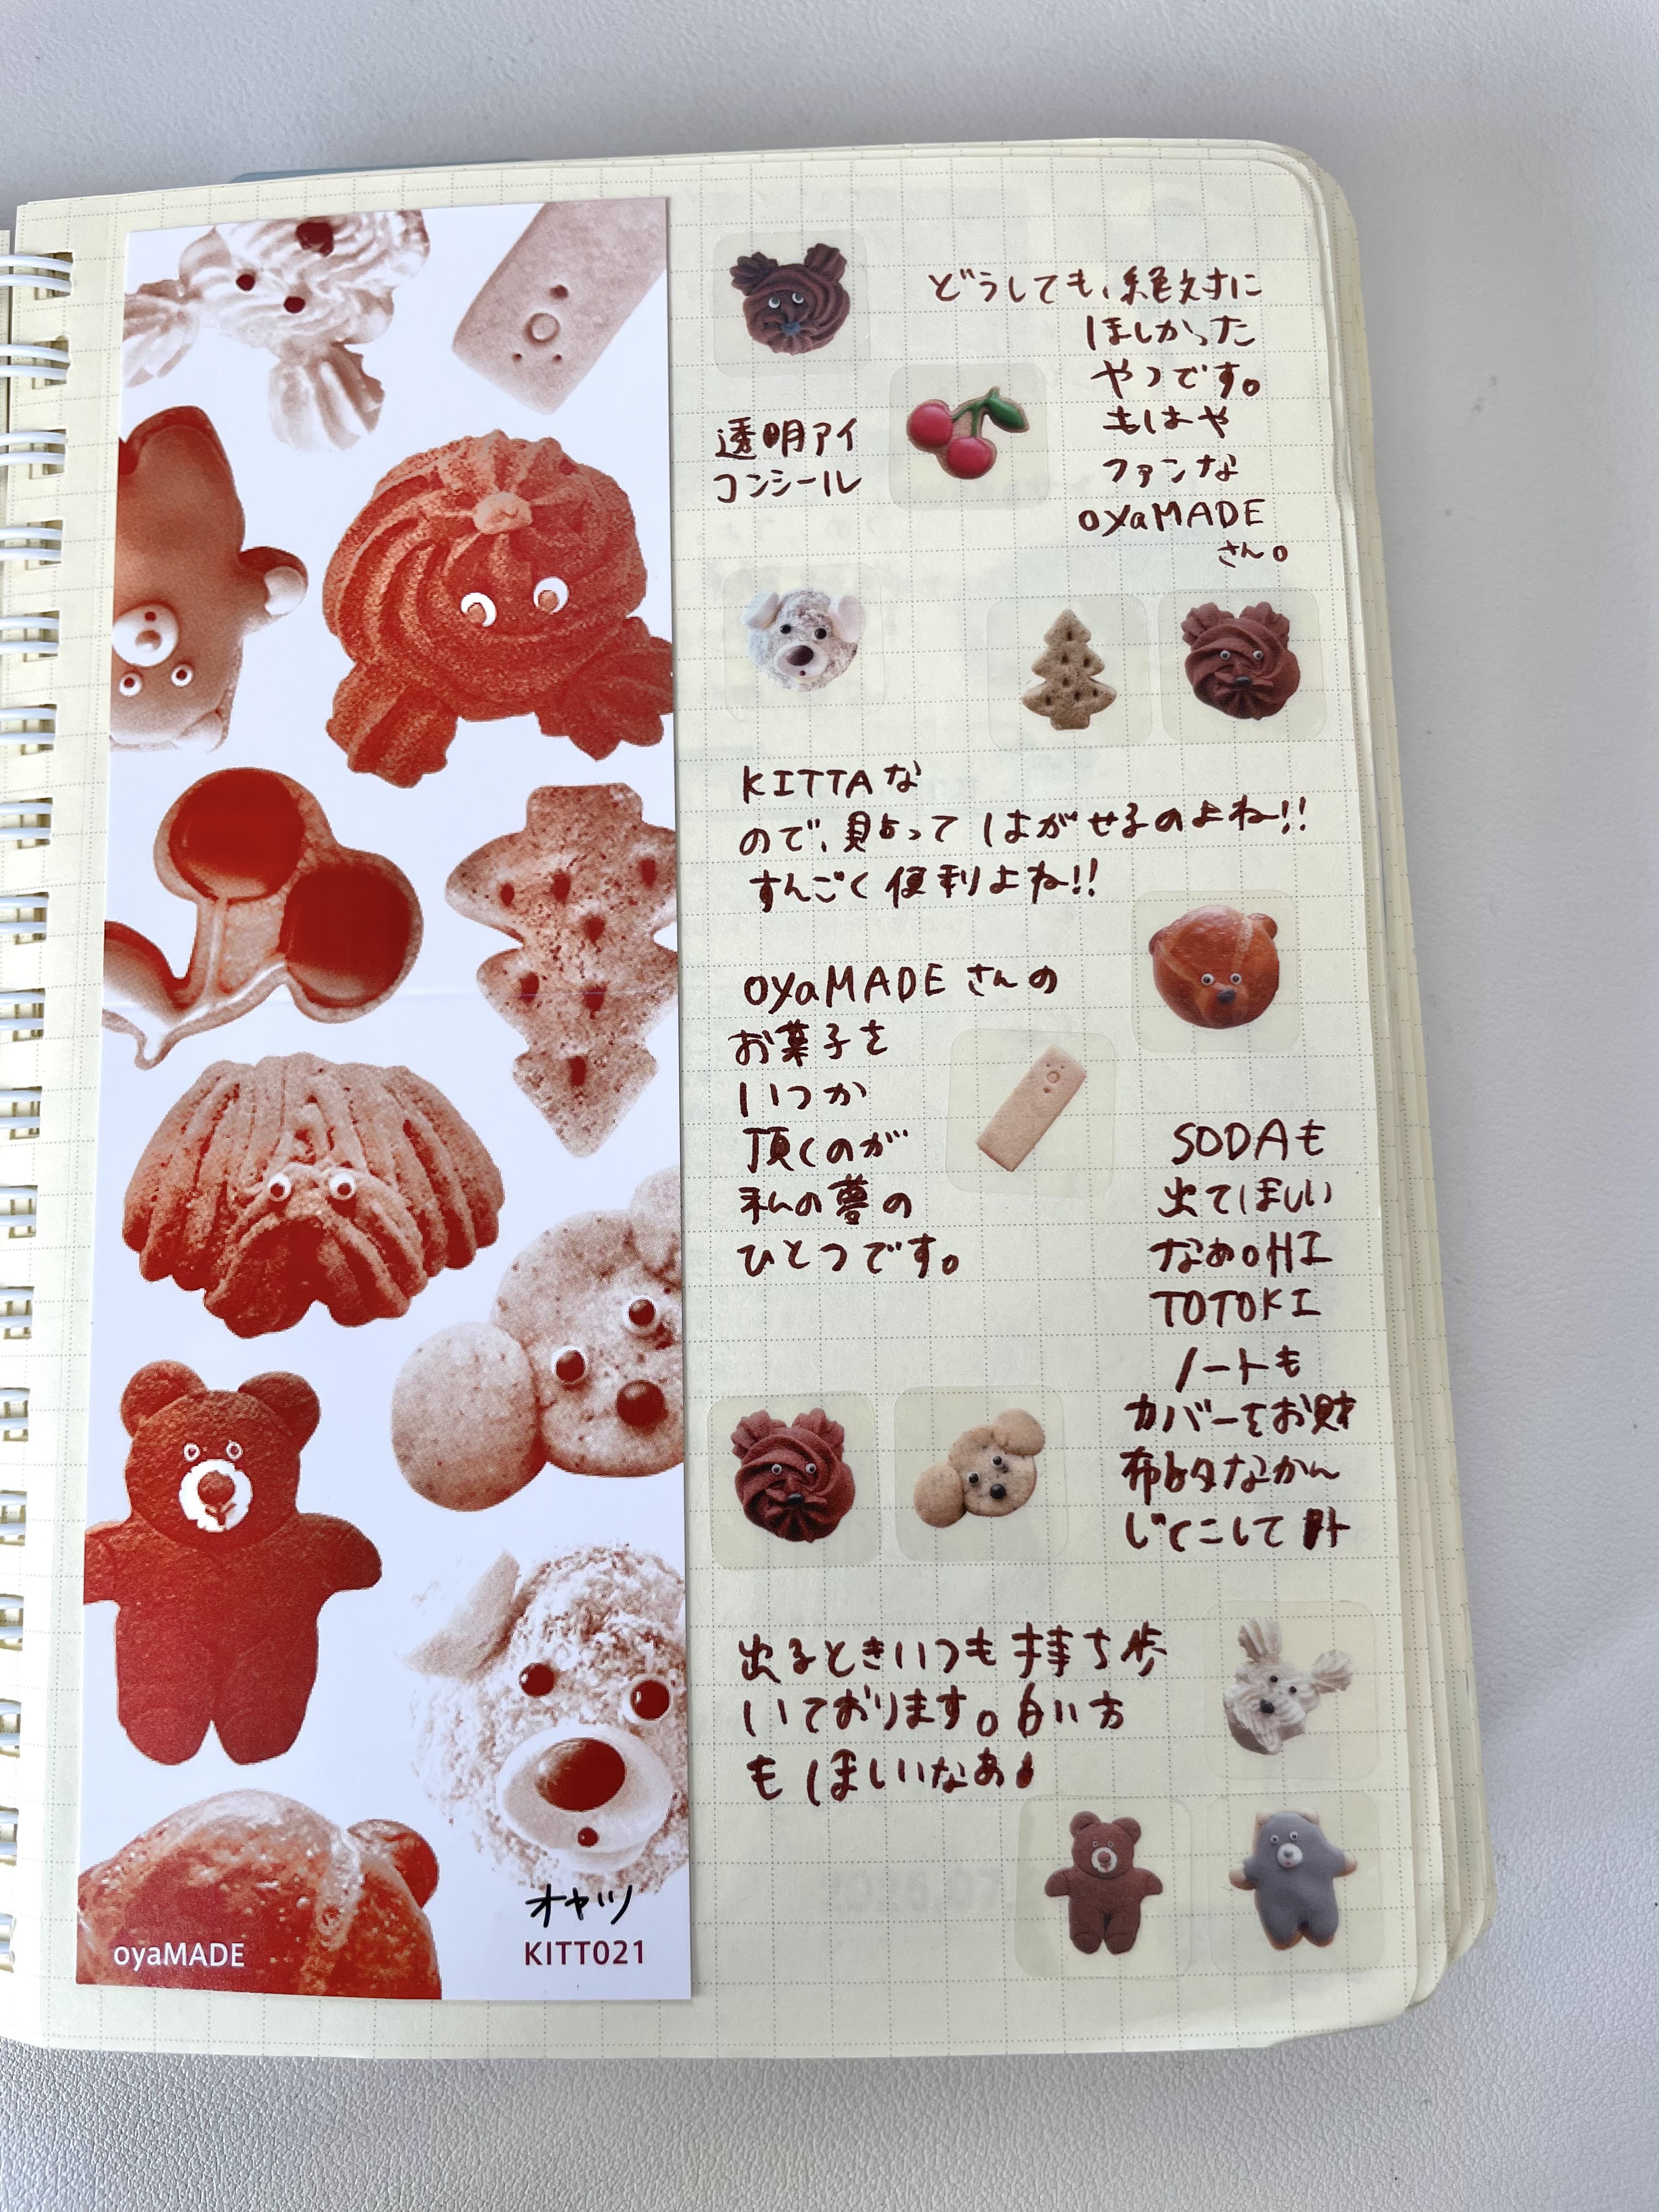 どうしても、絶対に
ほしかった
やつです。
もはや
ファンな
oyaMADE
さん。
透明アイ
コンシール
KITTAな
ので、貼ってはがせるのよね!!
すんごく便利よね!!
oyaMADEさんの
お菓子を
いつか
頂くのが
私の夢の
ひとつです。
SODAも
出てほしい
なあ。HI
TOTOKI
ノートも
カバーをお財
布的なかん
じにして
出るときいつも持ち歩
いております。白い方
もほしいなあ
オヤツ
oyaMADE
KITT021